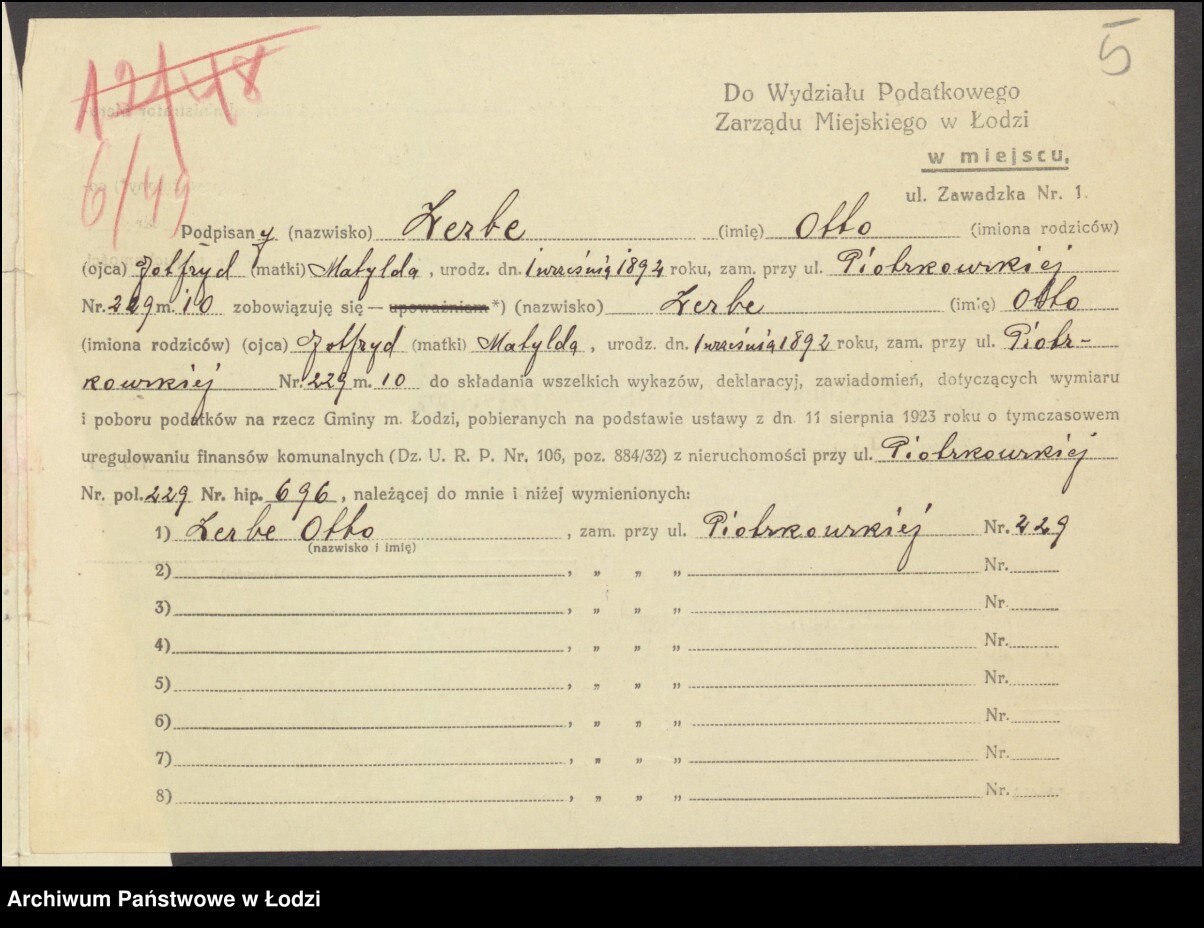 5
121/18
6/49
Do Wydziału Podatkowego
Zarządu Miejskiego w Łodzi
w miejscu,
ul. Zawadzka Nr. 1.
Podpisany (nazwisko) Zerbe (imię) Otto (imiona rodziców)
(ojca) Gotfryd (matki) Matylda, urodz. dn. 1 września 1892 roku, zam. przy ul. Piotrkowskiej
Nr. 229 m. 10 zobowiązuję się — upoważniam *) (nazwisko) Zerbe (imię) Otto
(imiona rodziców) (ojca) Gotfryd (matki) Matylda, urodz. dn. 1 września 1892 roku, zam. przy ul. Piotr-
kowskiej Nr. 229 m. 10 do składania wszelkich wykazów, deklaracyj, zawiadomień, dotyczących wymiaru
i poboru podatków na rzecz Gminy m. Łodzi, pobieranych na podstawie ustawy z dn. 11 sierpnia 1923 roku o tymczasowem
uregulowaniu finansów komunalnych (Dz. U. R. P. Nr. 106, poz. 884/32) z nieruchomości przy ul. Piotrkowskiej
Nr. pol. 229 Nr. hip. 696, należącej do mnie i niżej wymienionych:
1) Zerbe Otto, zam. przy ul. Piotrkowskiej Nr. 229
(nazwisko i imię)
2) , „ „ „ Nr.
3) , „ „ „ Nr.
4) , „ „ „ Nr.
5) , „ „ „ Nr.
6) , „ „ „ Nr.
7) , „ „ „ Nr.
8) , „ „ „ Nr.
Archiwum Państwowe w Łodzi